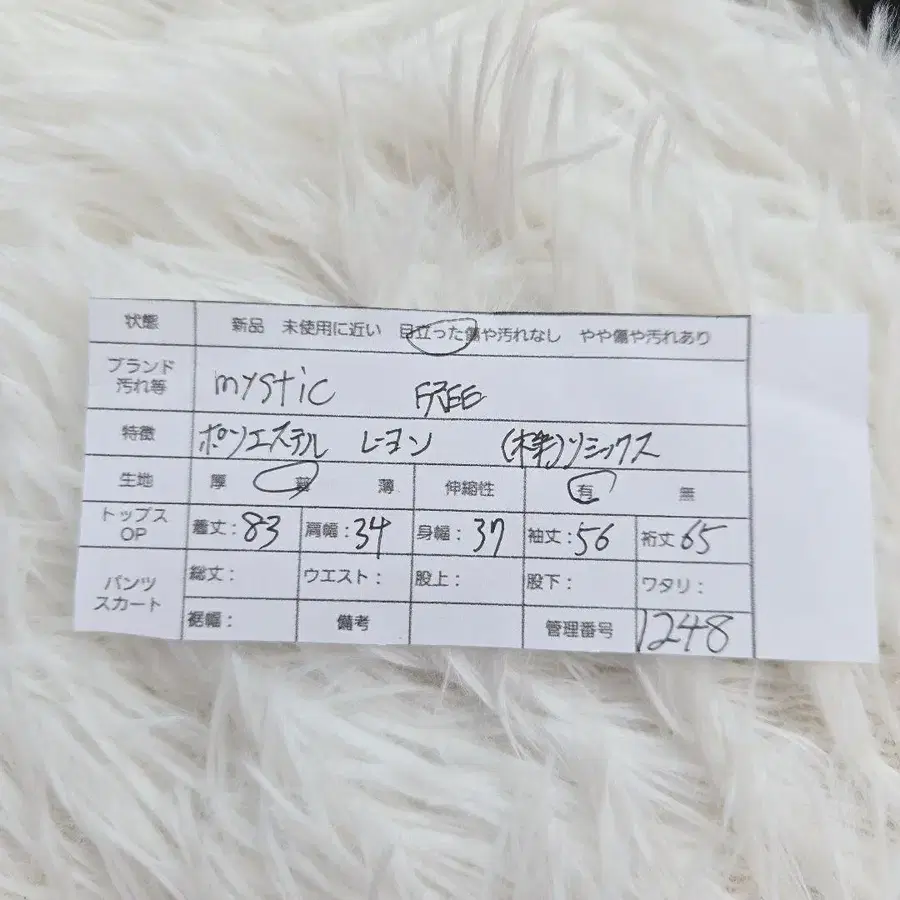 状態 新品 未使用に近い 目立った傷や汚れなし やや傷や汚れあり
ブランド 汚れ等 mystic FREE
特徴 ポリエステル レーヨン (株)リミックス
生地 厚 薄 伸縮性 有 無
トップス OP 着丈:83 肩幅:34 身幅:37 袖丈:56 裄丈65
パンツ スカート 総丈: ウエスト: 股上: 股下: ワタリ:
裾幅: 備考 管理番号 1248